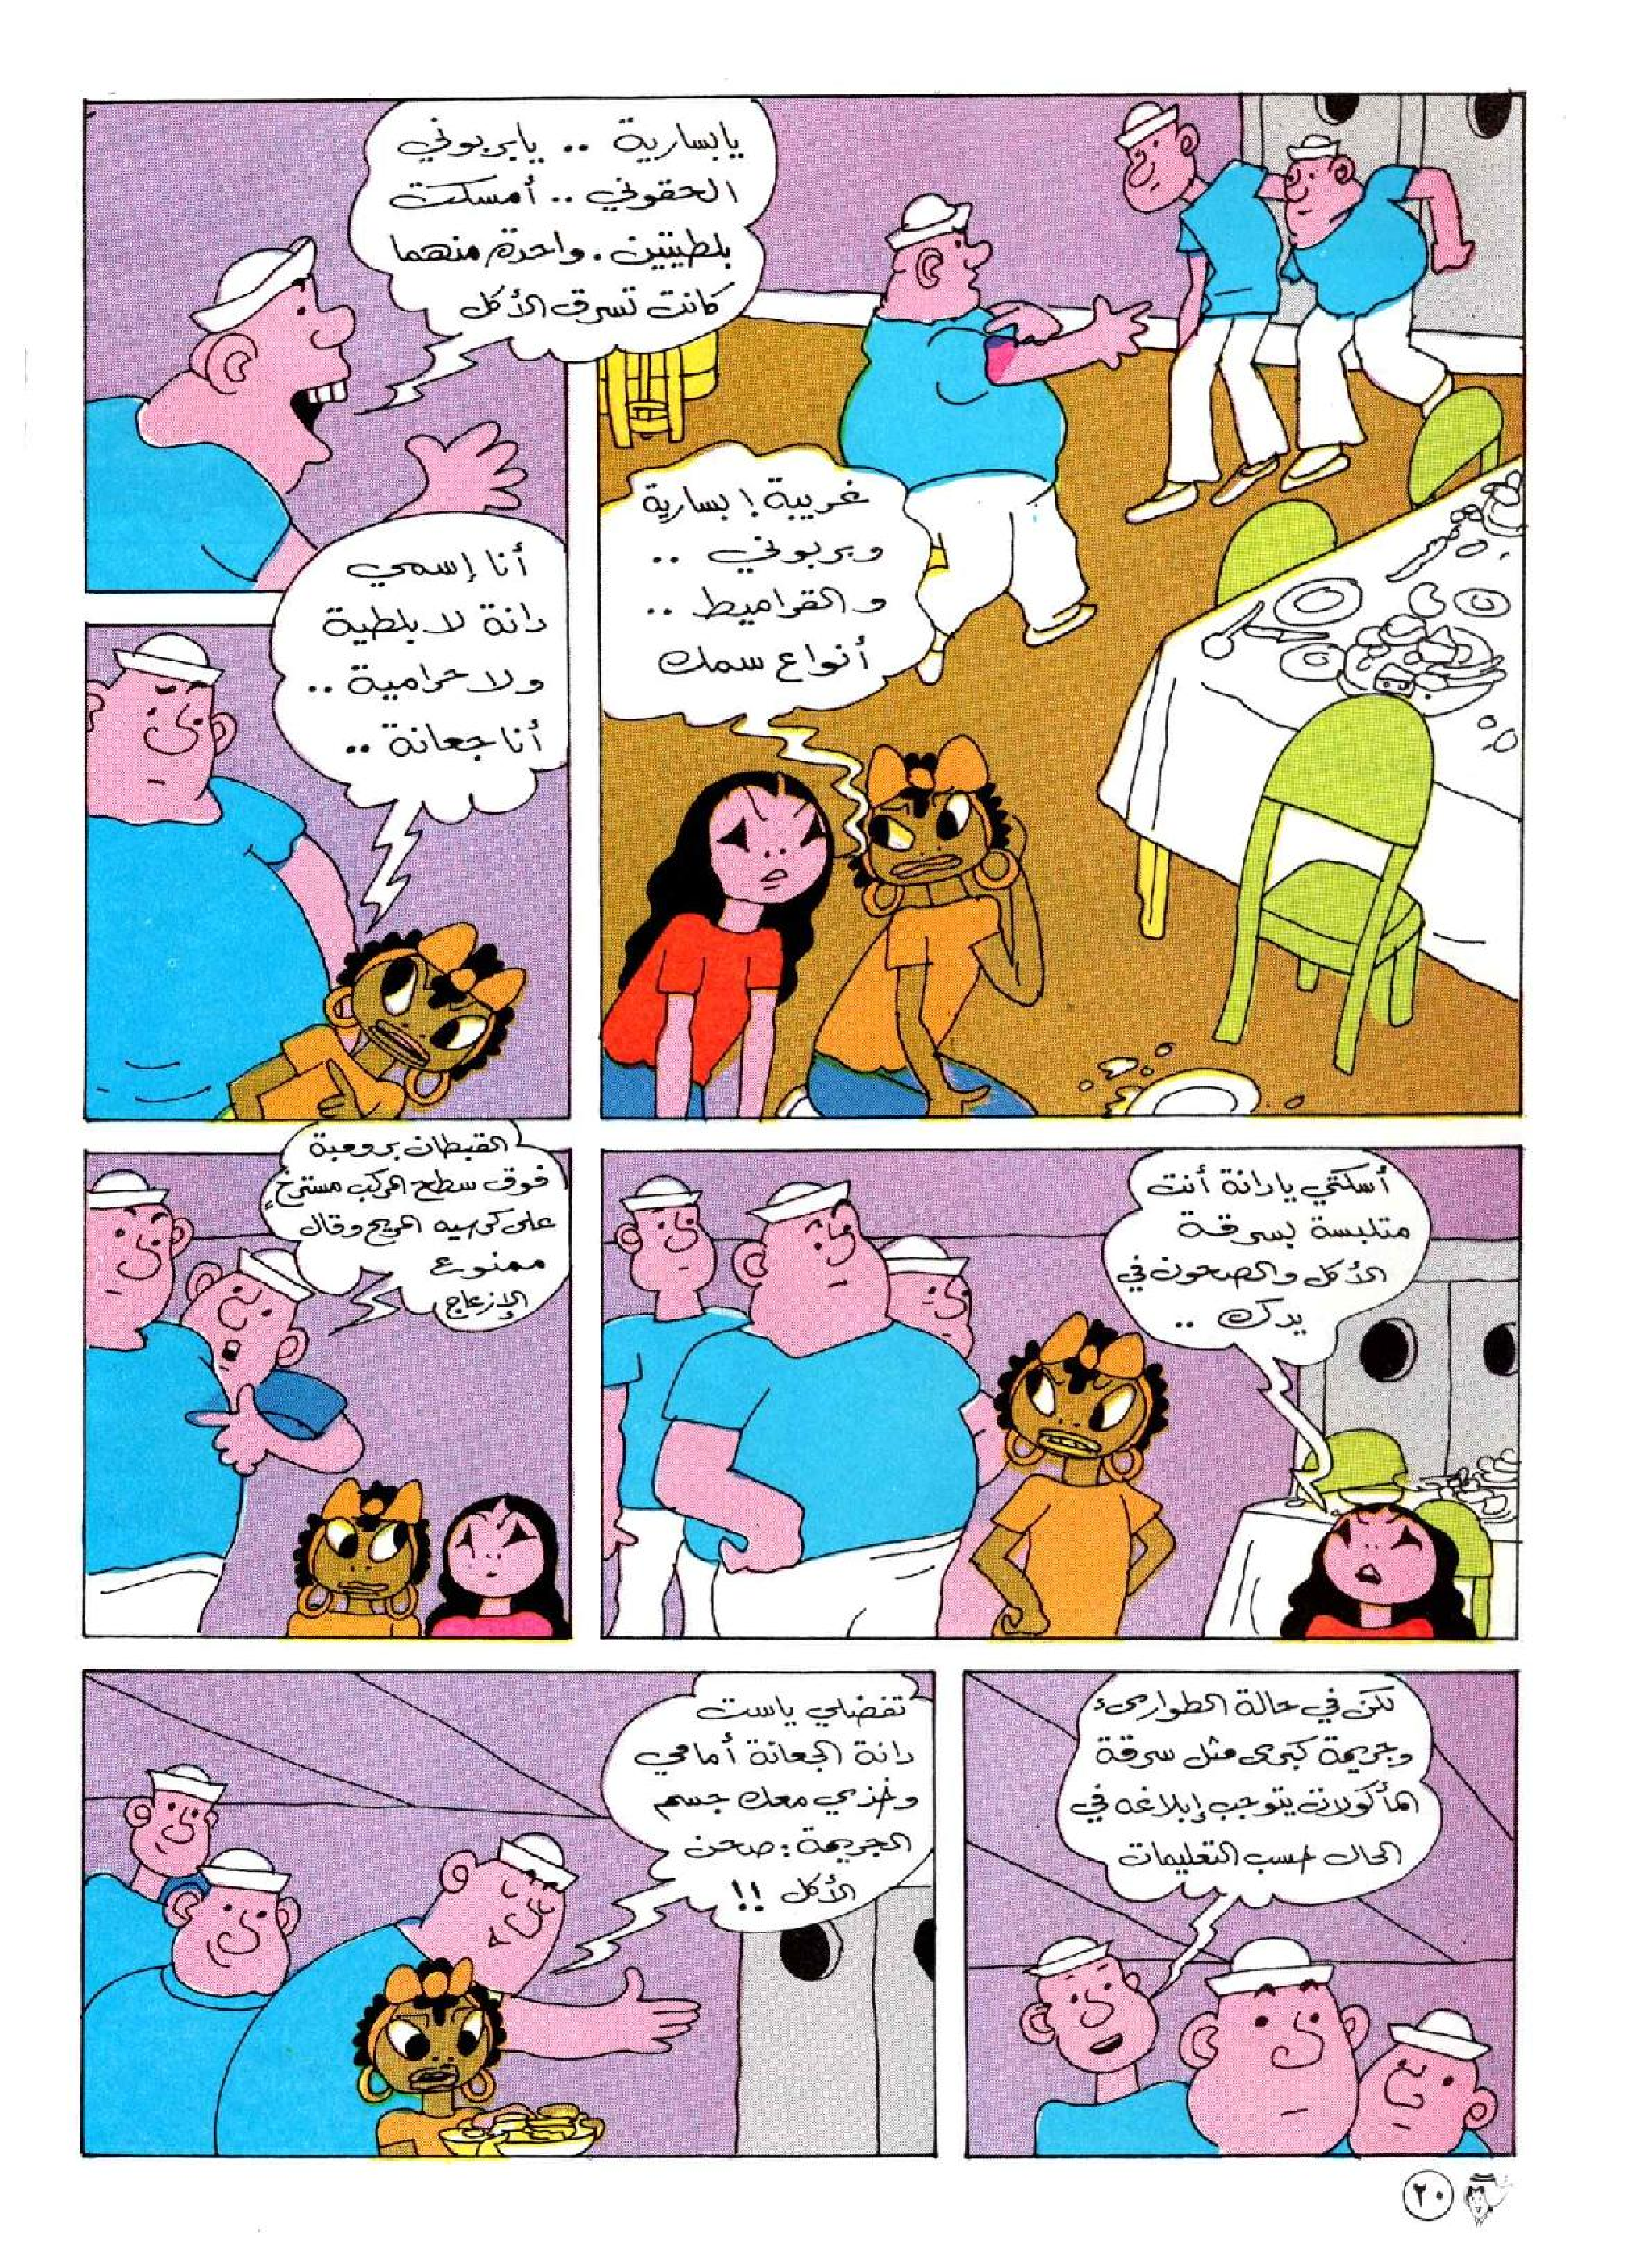 يابسارية .. يابربوني
الحقوني .. أمسكت
بلطيتين . واحدة منهما
كانت تسرق الأكل
غريبة ! بسارية
وبربوني ..
والقراميط ..
أنواع سمك
أنا إسمي
دانة لا بلطية
ولا حرامية ..
أنا جعانة ..
أسكتي يا دانة أنت
متلبسة بسرقة
الأكل والصحون في
يدك ..
القبطان بروعبة
فوق سطح المركب مسترخٍ
على كرسيه المريح وقال
ممنوع
الإزعاج
لكن في حالة الطوارىء
وجريمة كبرى مثل سرقة
المأكولات يتوجب إبلاغه في
الحال حسب التعليمات
تفضلي ياست
دانة الجعانة أمامي
وخذي معك جسم
الجريمة : صحن
الأكل !!
٢٠